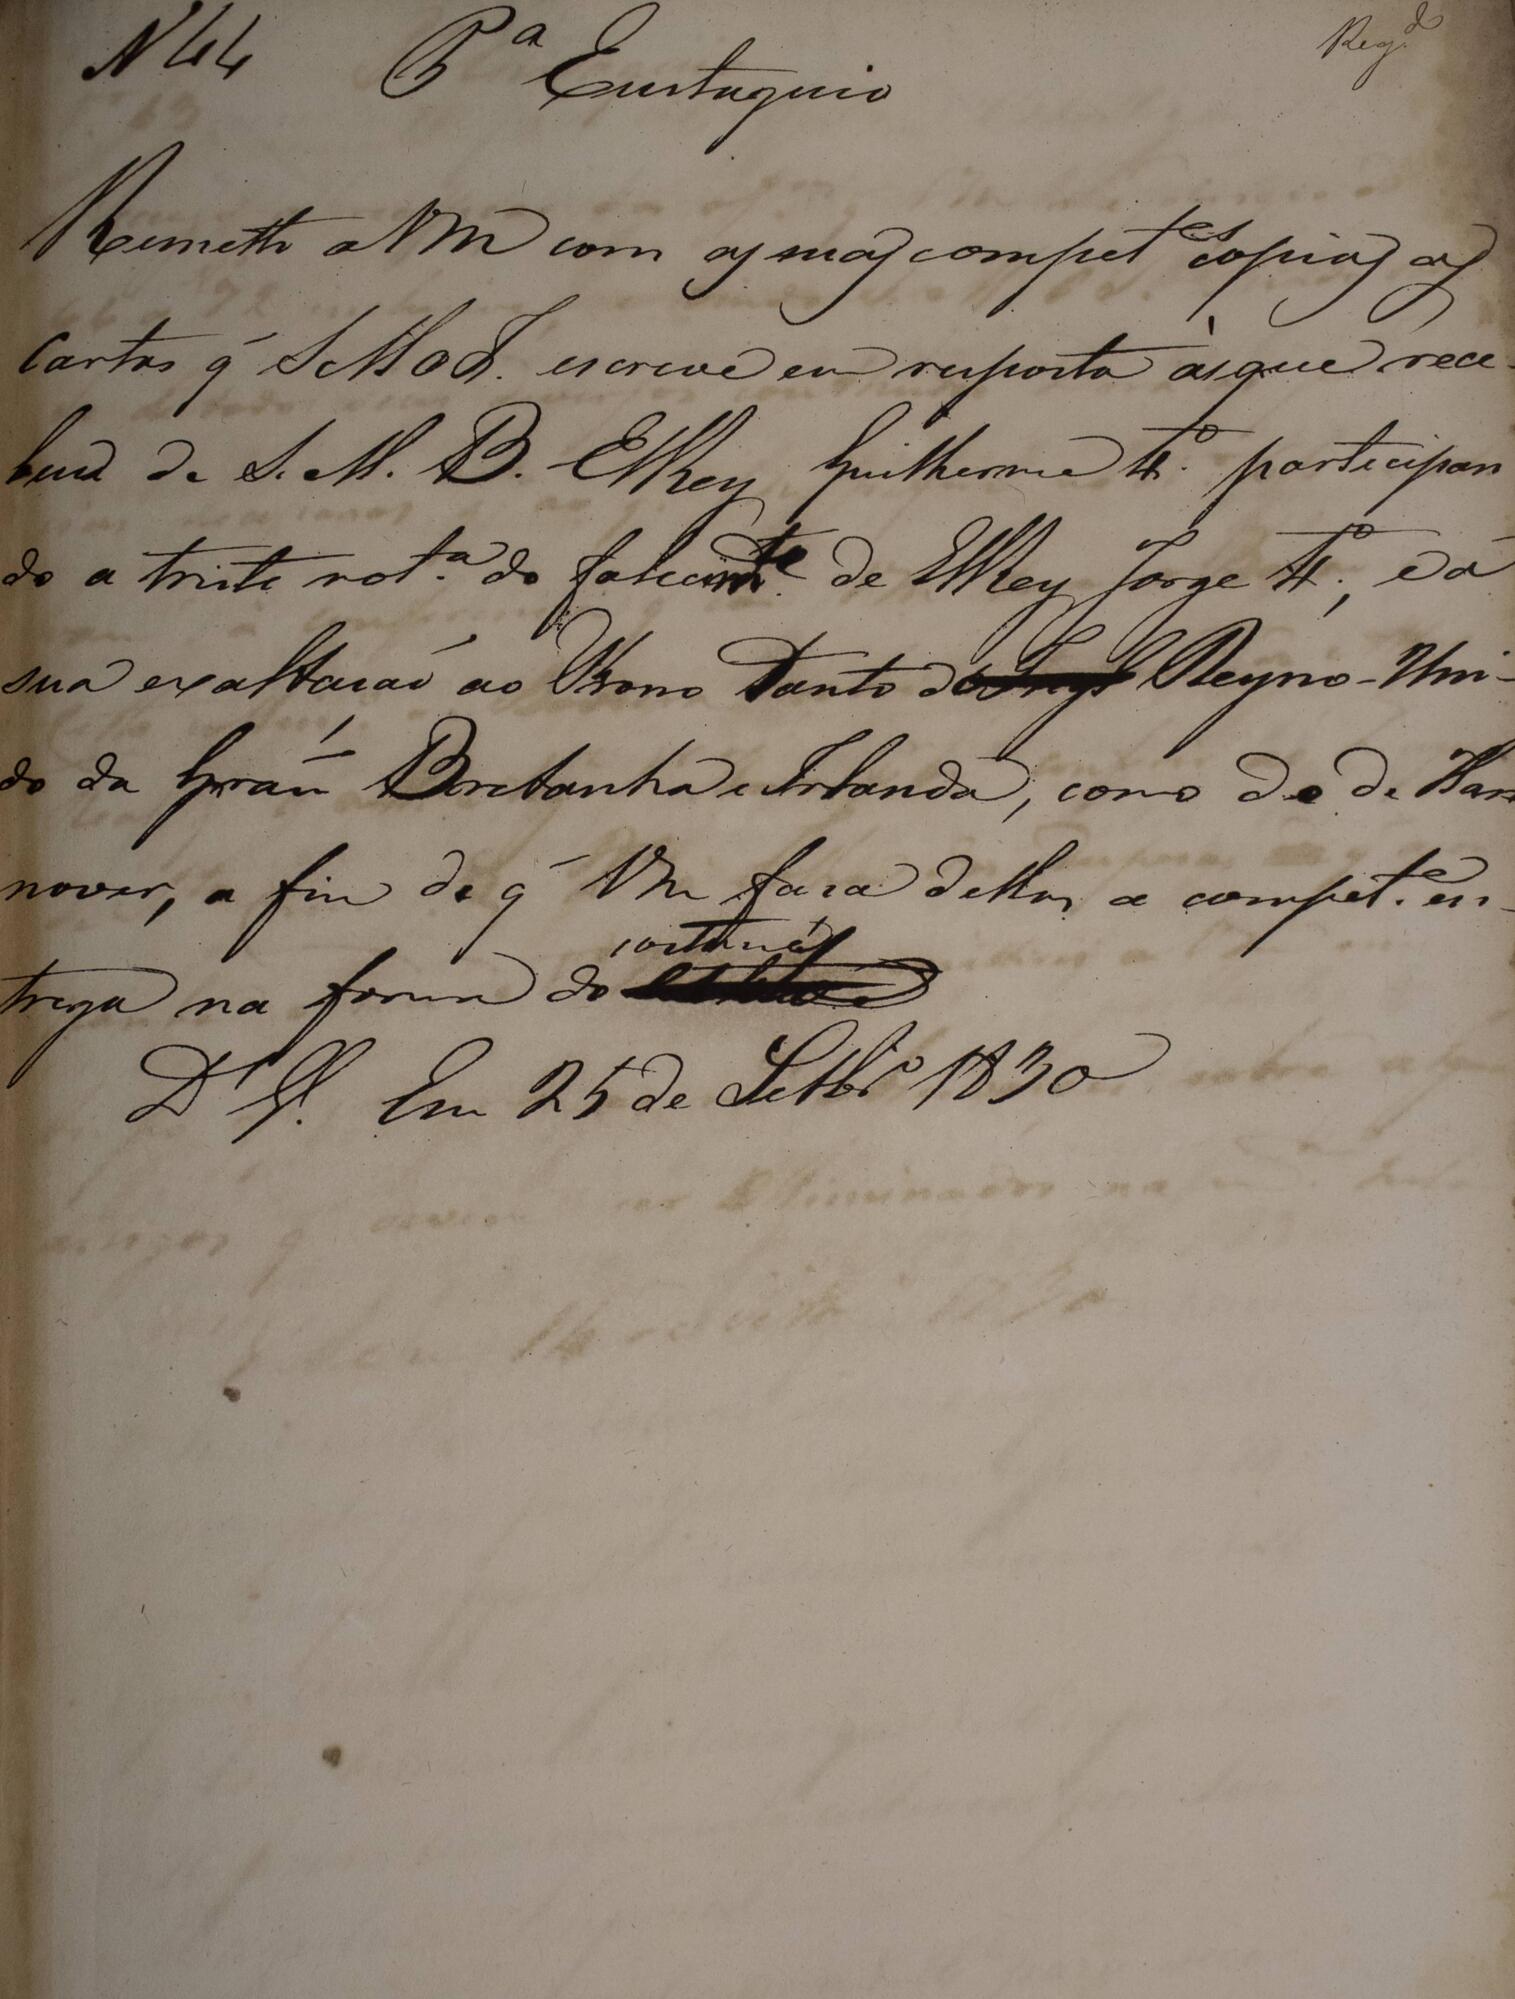 N 44 Pa Eustaquio Regdo
Remetto a VM com as mas competes copias as
Cartas q̃ S. M. O I. escreve em resposta ás que rece-
beu de S. M. B. ElRey Guilherme 4o. participan
do a triste nota. do falecimte. de ElRey Jorge 4o., e da
sua exaltacaõ ao Throno Tanto do Reyno-Uni-
do da Grãn Bretanha e Irlanda, como do de Han
nover, a fim de q̃ VM faca dellas a compete. en-
trega na forma do costume
Ds. Ge. Em 25 de Setbro 1830